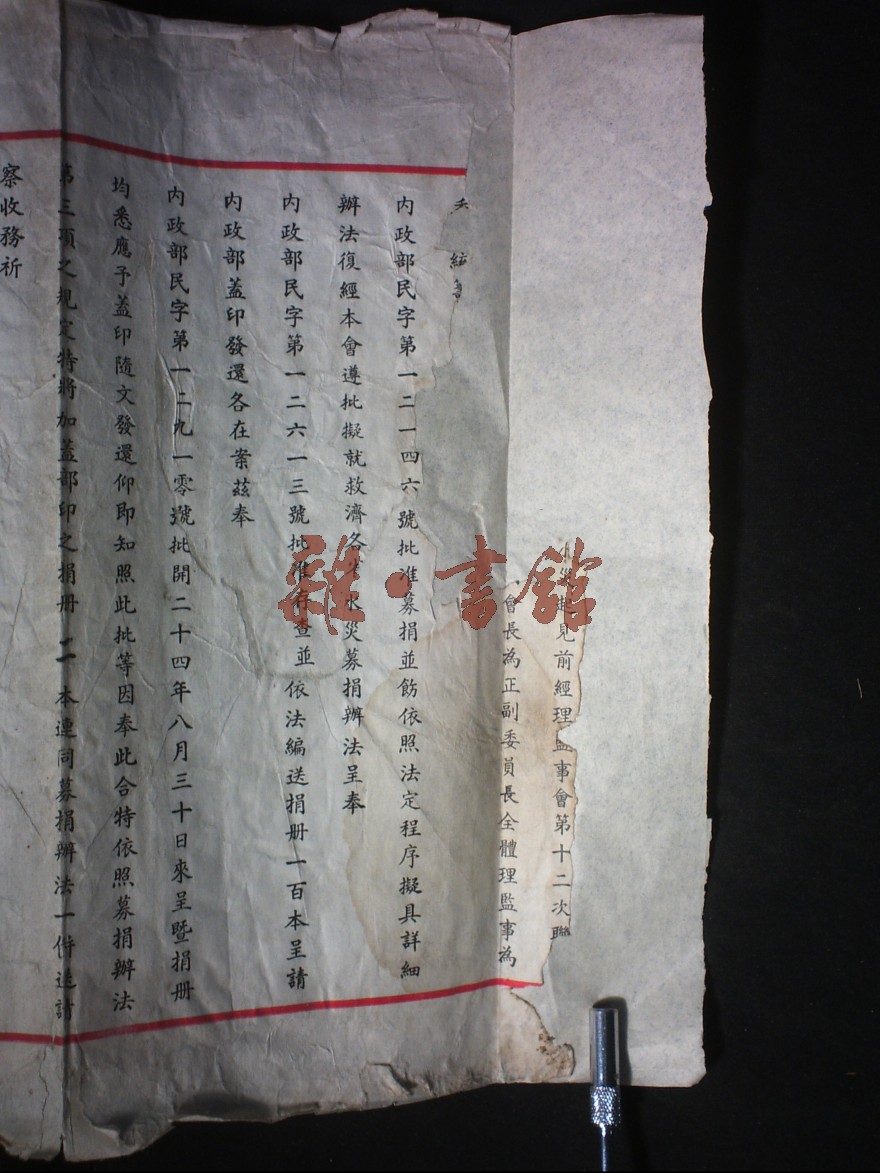 災起見前經理監事會第十二次聯
會長為正副委員長全體理監事為
內政部民字第一二一四六號批准募捐並飭依照法定程序擬具詳細
辦法復經本會遵批擬就救濟各省水災募捐辦法呈奉
內政部民字第一二六一三號批准存查並依法編送捐册一百本呈請
內政部蓋印發還各在案茲奉
內政部民字第一二九一零號批開二十四年八月三十日來呈暨捐册
均悉應予蓋印隨文發還仰即知照此批等因奉此合特依照募捐辦法
第三項之規定特將加蓋部印之捐册二本連同募捐辦法一併送請
察收務祈
雜·書館